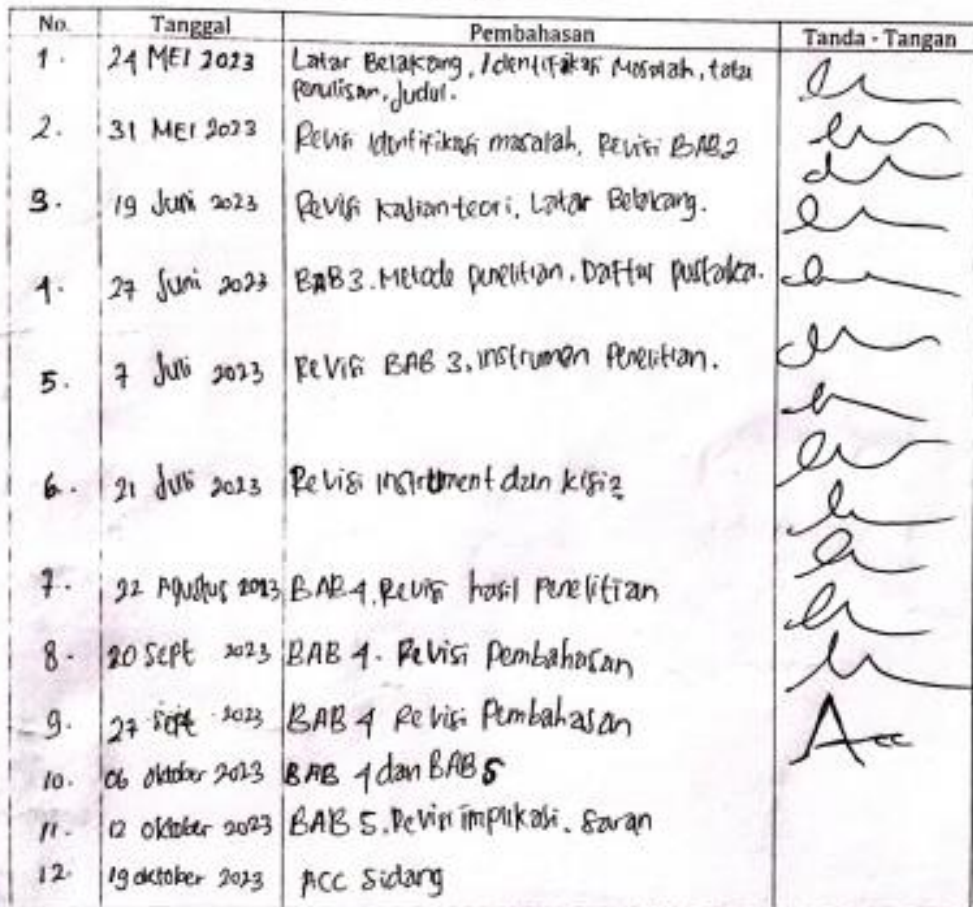 No. Tanggal Pembahasan Tanda - Tangan
1. 24 MEI 2023 Latar Belakang, Identifikasi Masalah, tata
penulisan, Judul.
2. 31 MEI 2023 Revisi Identifikasi masalah, Revisi BAB 2
3. 19 Juni 2023 Revisi kajian teori, Latar Belakang.
4. 27 Juni 2023 BAB 3. Metode penelitian. Daftar pustaka.
5. 7 Juli 2023 Revisi BAB 3, instrumen Penelitian.
6. 21 Juli 2023 Revisi instrument dan kisi2
7. 22 Agustus 2023 BAB 4. Revisi hasil Penelitian
8. 20 Sept 2023 BAB 4. Revisi Pembahasan
9. 27 sept 2023 BAB 4 Revisi Pembahasan
Acc
10. 06 oktober 2023 BAB 4 dan BAB 5
11. 12 oktober 2023 BAB 5. Revisi implikasi. Saran
12. 19 oktober 2023 Acc Sidang